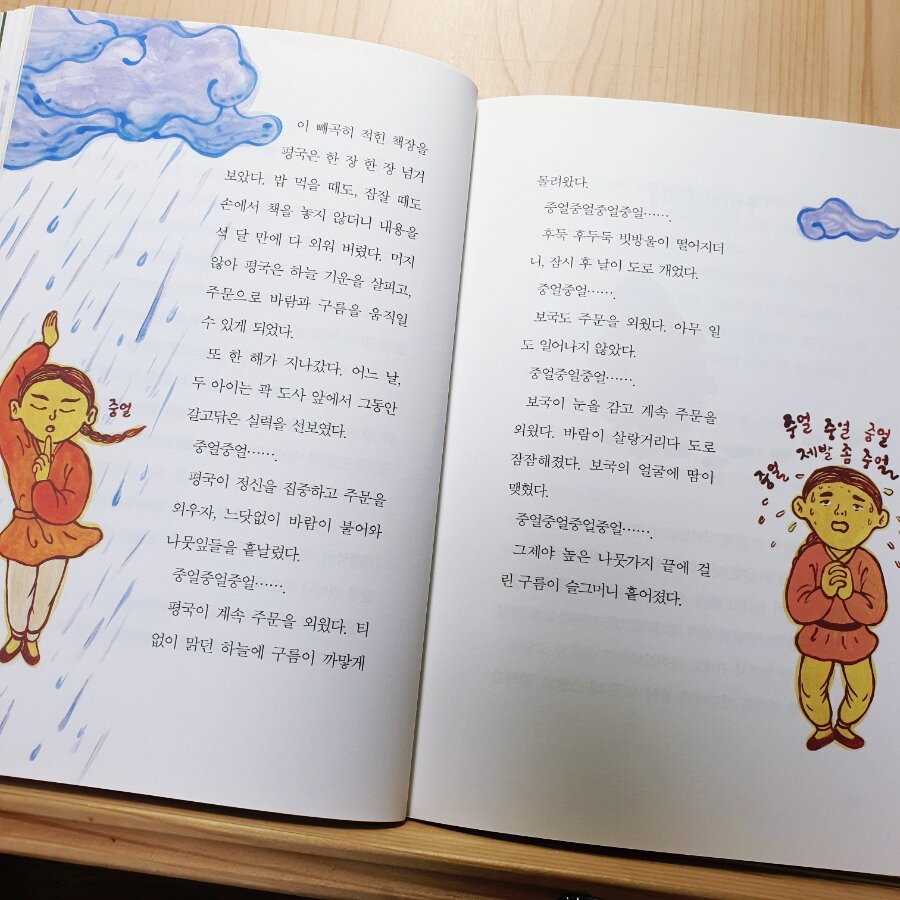 이 빼곡히 적힌 책장을
평국은 한 장 한 장 넘겨
보았다. 밥 먹을 때도, 잠잘 때도
손에서 책을 놓지 않더니 내용을
석 달 만에 다 외워 버렸다. 머지
않아 평국은 하늘 기운을 살피고,
주문으로 바람과 구름을 움직일
수 있게 되었다.
또 한 해가 지나갔다. 어느 날,
두 아이는 곽 도사 앞에서 그동안
갈고닦은 실력을 선보였다.
중얼중얼…….
평국이 정신을 집중하고 주문을
외우자, 느닷없이 바람이 불어와
나뭇잎들을 흩날렸다.
중얼중얼중얼…….
평국이 계속 주문을 외웠다. 티
없이 맑던 하늘에 구름이 까맣게
중얼
몰려왔다.
중얼중얼중얼중얼…….
후둑 후두둑 빗방울이 떨어지더
니, 잠시 후 날이 도로 개었다.
중얼중얼…….
보국도 주문을 외웠다. 아무 일
도 일어나지 않았다.
중얼중얼중얼…….
보국이 눈을 감고 계속 주문을
외웠다. 바람이 살랑거리다 도로
잠잠해졌다. 보국의 얼굴에 땀이
맺혔다.
중얼중얼중얼중얼…….
그제야 높은 나뭇가지 끝에 걸
린 구름이 슬그머니 흩어졌다.
중얼 중얼 중얼
중얼 제발 좀 중얼